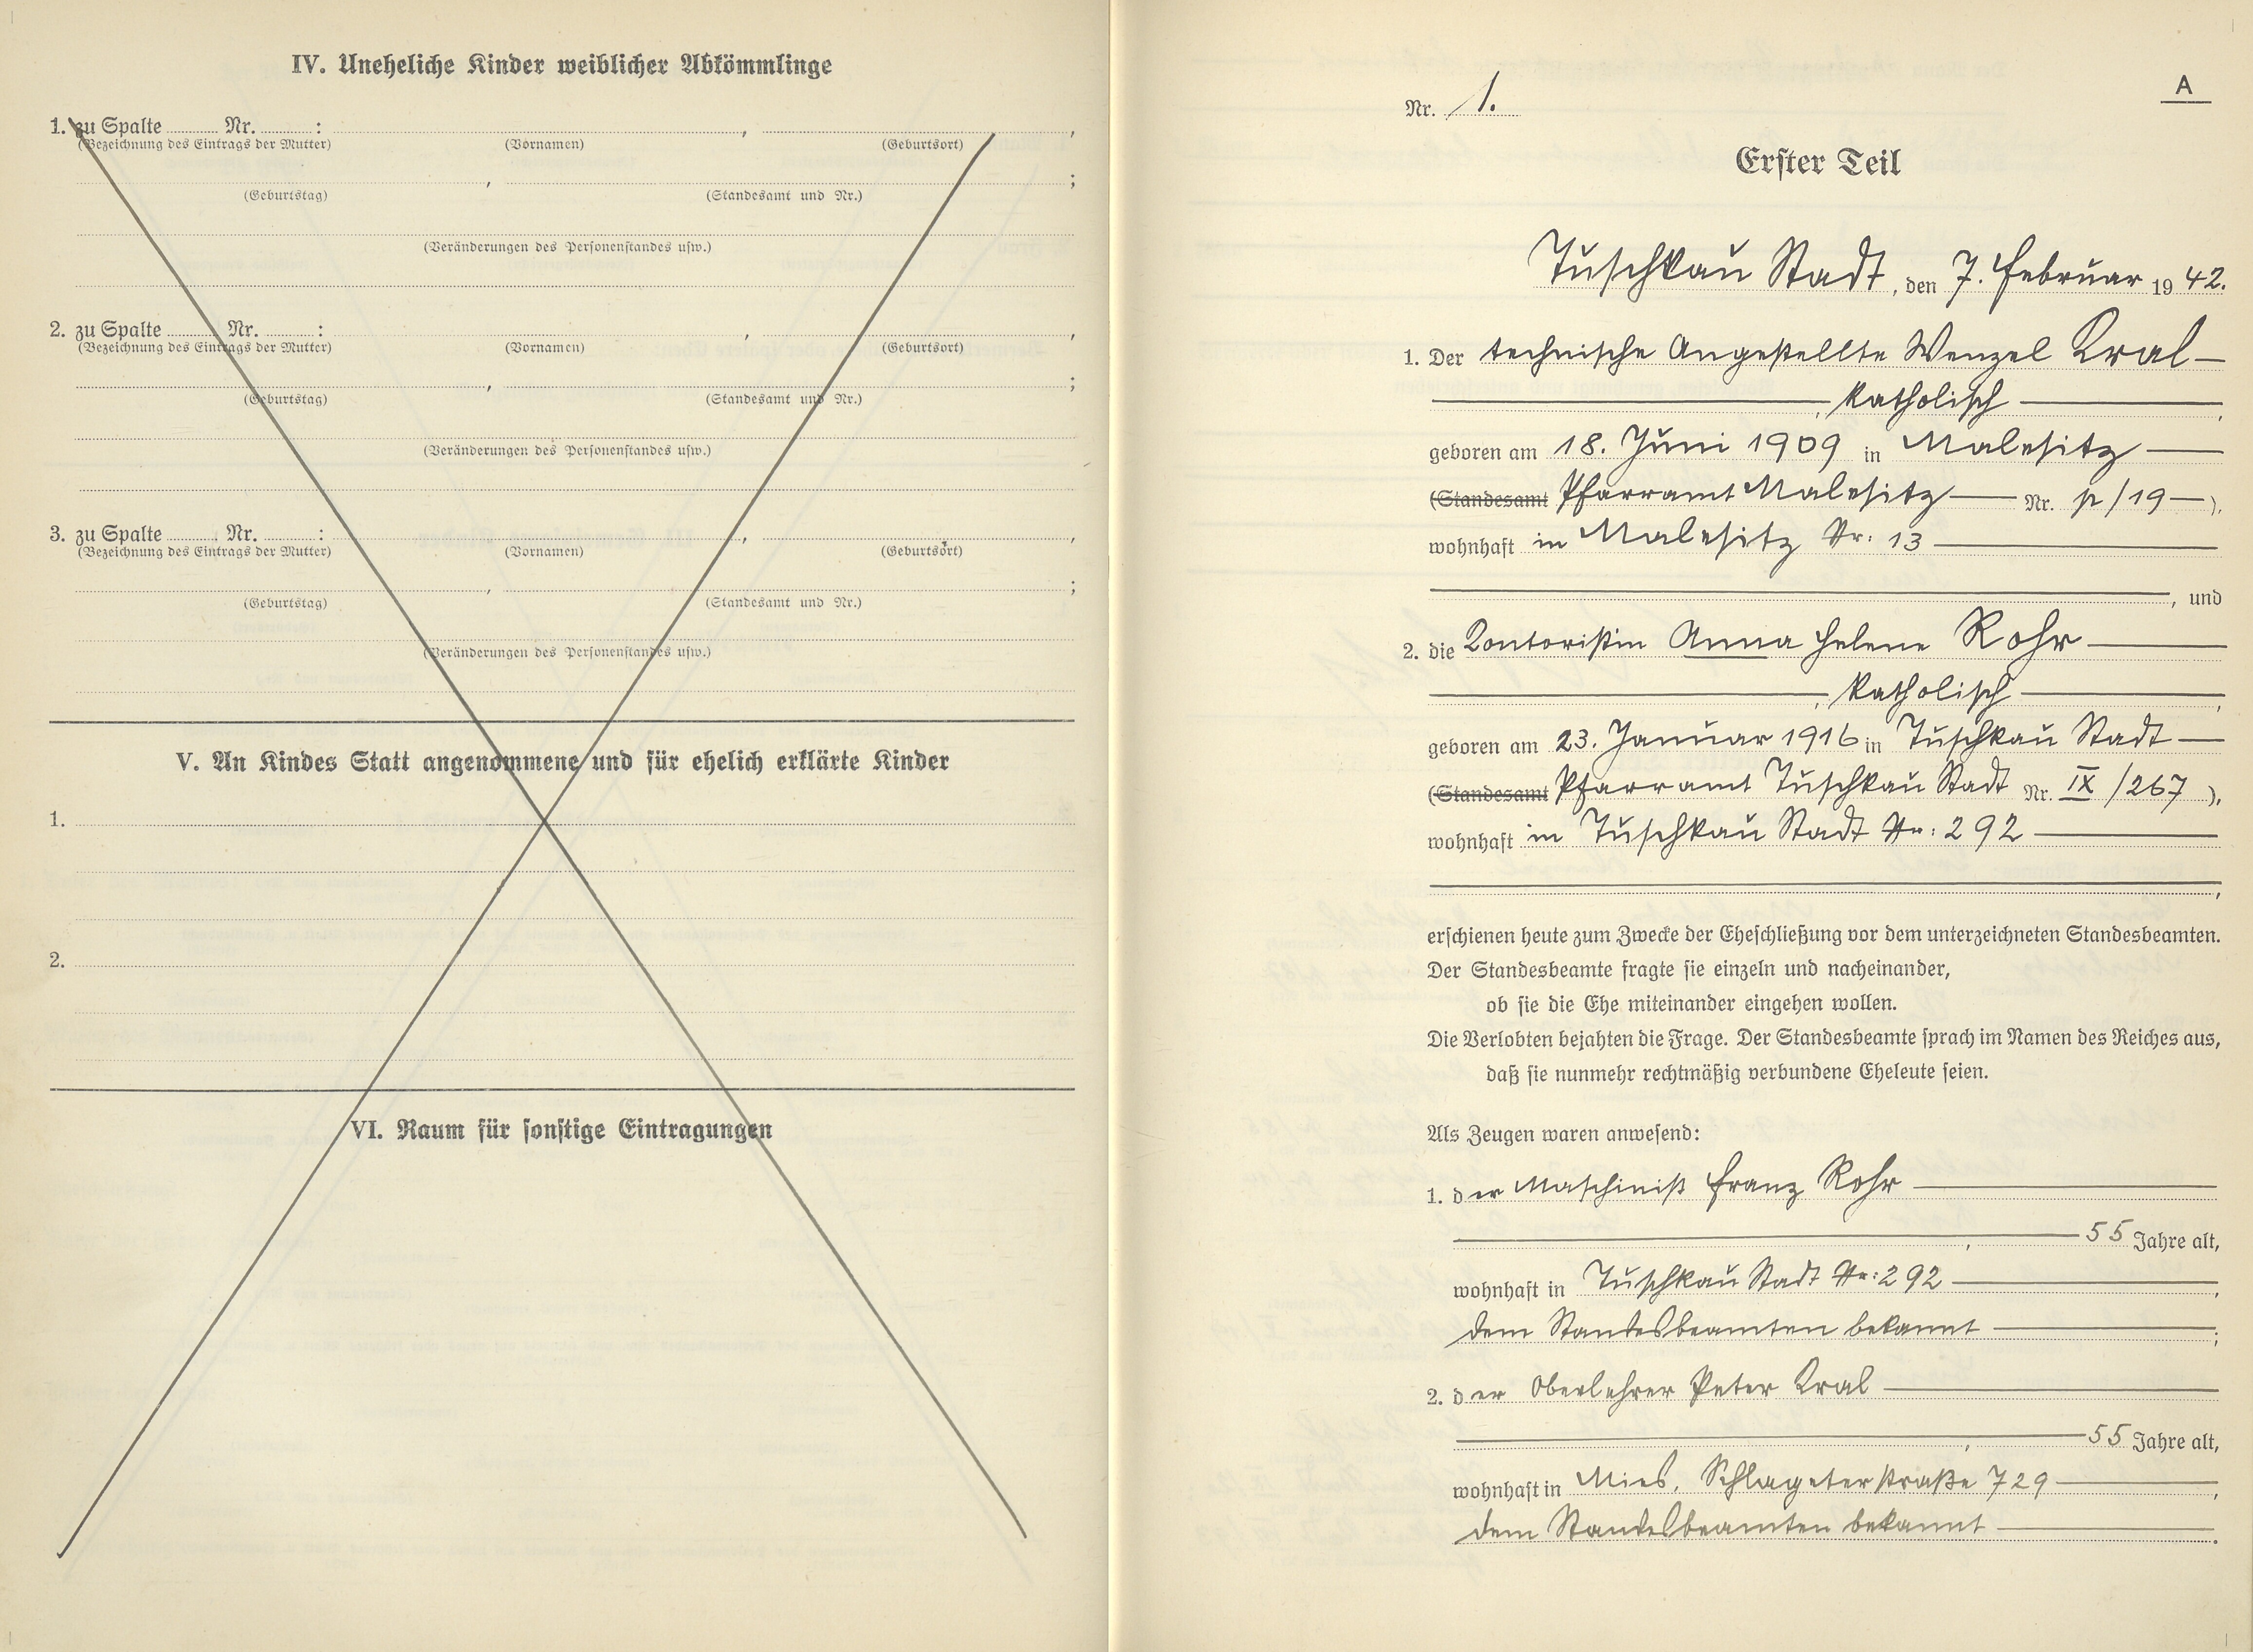 IV. Uneheliche Kinder weiblicher Abkömmlinge
1. zu Spalte Nr. : , ,
(Bezeichnung des Eintrags der Mutter) (Vornamen) (Geburtsort)
, ;
(Geburtstag) (Standesamt und Nr.)
(Veränderungen des Personenstandes usw.)
2. zu Spalte Nr. : , ,
(Bezeichnung des Eintrags der Mutter) (Vornamen) (Geburtsort)
, ;
(Geburtstag) (Standesamt und Nr.)
(Veränderungen des Personenstandes usw.)
3. zu Spalte Nr. : , ,
(Bezeichnung des Eintrags der Mutter) (Vornamen) (Geburtsort)
, ;
(Geburtstag) (Standesamt und Nr.)
(Veränderungen des Personenstandes usw.)
V. An Kindes Statt angenommene und für ehelich erklärte Kinder
1.
2.
VI. Raum für sonstige Eintragungen
A
Nr. 1.
Erster Teil
Tuschkau Stadt, den 7. Februar 1942.
1. Der technische Angestellte Wenzel Kral
, katholisch ,
geboren am 18. Juni 1909 in Malesitz
(Standesamt Pfarramt Malesitz Nr. p/19 ),
wohnhaft in Malesitz Nr. 13
, und
2. die Kontoristin Anna Helene Rohr
, katholisch ,
geboren am 23. Januar 1916 in Tuschkau Stadt
(Standesamt Pfarramt Tuschkau Stadt Nr. IX/267 ),
wohnhaft in Tuschkau Stadt Nr: 292
,
erschienen heute zum Zwecke der Eheschließung vor dem unterzeichneten Standesbeamten.
Der Standesbeamte fragte sie einzeln und nacheinander,
ob sie die Ehe miteinander eingehen wollen.
Die Verlobten bejahten die Frage. Der Standesbeamte sprach im Namen des Reiches aus,
daß sie nunmehr rechtmäßig verbundene Eheleute seien.
Als Zeugen waren anwesend:
1. der Maschinist Franz Rohr
, 55 Jahre alt,
wohnhaft in Tuschkau Stadt Nr: 292 ,
dem Standesbeamten bekannt ;
2. der Oberlehrer Peter Kral
, 55 Jahre alt,
wohnhaft in Mies, Schlageterstraße 729 ,
dem Standesbeamten bekannt .